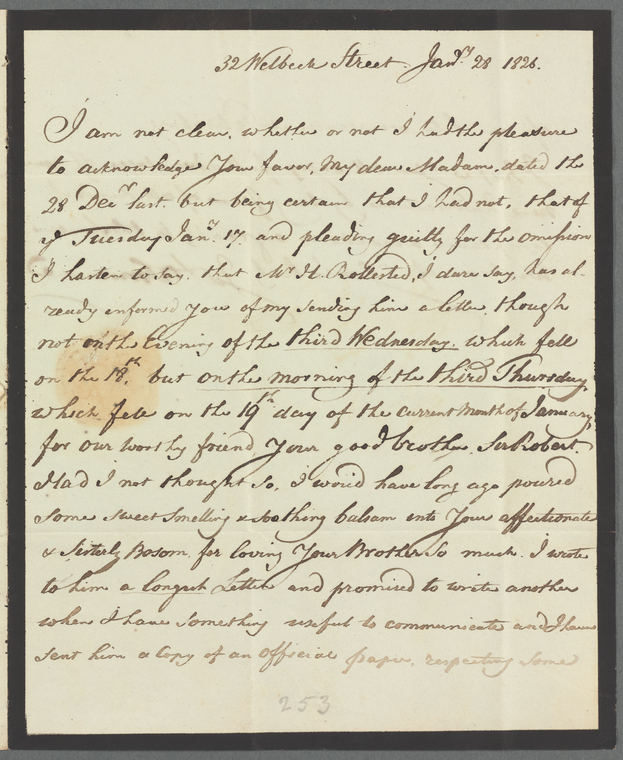 32 Welbeck Street Jany 28 1826.
I am not clear, whether or not I had the pleasure
to acknowledge Your favor, My dear Madam, dated the
28 Decr last. but being certain that I had not, that of
ye Tuesday Jany. 17 and pleading guilty for the omission
I hasten to say, that Mr H. Rollested, I dare say, has al
ready informed you of my sending him a letter, though
not on the Evening of the third Wednesday. which fell
on the 18th, but on the morning of the third Thursday,
which fell on the 19th day of the current Month of January,
for our worthy friend Your good brother, Sir Robert.
Had I not thought so, I wou'd have long ago poured
some sweet smelling & soothing balsam into Your affectionate
& Sisterly Bosom, for loving Your Brother so much. I wrote
to him a longish Letter and promised to write another
when I have something useful to communicate and I have
sent him a Copy of an Official paper, respecting some
253